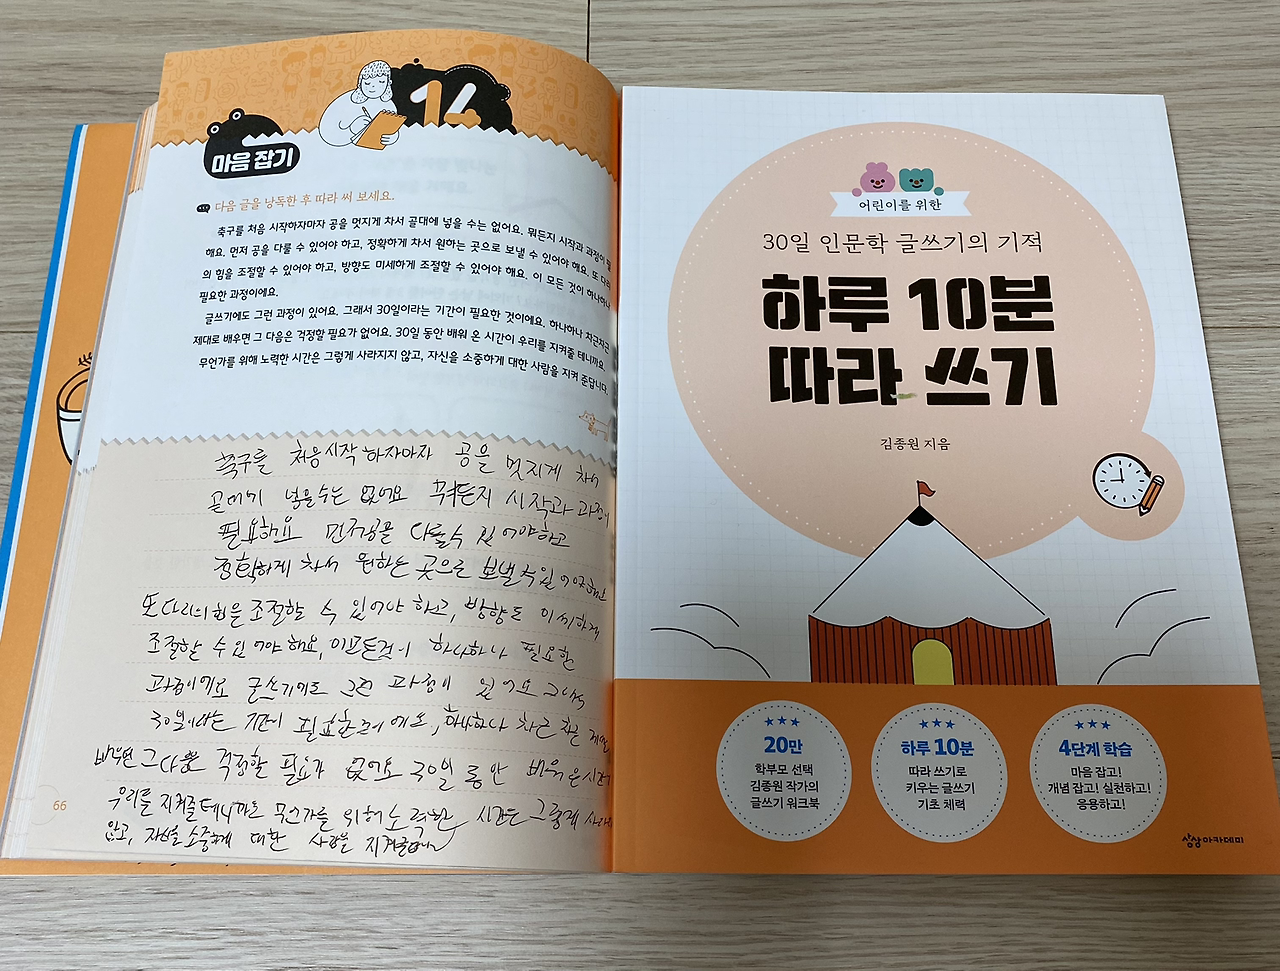 14
마음 잡기
다음 글을 낭독한 후 따라 써 보세요.
축구를 처음 시작하자마자 공을 멋지게 차서 골대에 넣을 수는 없어요. 뭐든지 시작과 과정이 필
해요. 먼저 공을 다룰 수 있어야 하고, 정확하게 차서 원하는 곳으로 보낼 수 있어야 해요. 또 다리
의 힘을 조절할 수 있어야 하고, 방향도 미세하게 조절할 수 있어야 해요. 이 모든 것이 하나하나
필요한 과정이에요.
글쓰기에도 그런 과정이 있어요. 그래서 30일이라는 기간이 필요한 것이에요. 하나하나 차근차근
제대로 배우면 그 다음은 걱정할 필요가 없어요. 30일 동안 배워 온 시간이 우리를 지켜줄 테니까요.
무언가를 위해 노력한 시간은 그렇게 사라지지 않고, 자신을 소중하게 대한 사람을 지켜 준답니다.
축구를 처음 시작하자마자 공을 멋지게 차서
골대에 넣을수는 없어요 뭐든지 시작과 과정이
필요해요 먼저공을 다룰수 있어야하고
정확하게 차서 원하는 곳으로 보낼수있어야해요
또다리의힘은 조절할 수 있어야 하고, 방향도 미세하게
조절할 수있어야 해요, 이모든것이 하나하나 필요한
과정이에요 글쓰기에도 그런 과정이 있어요 그래서
30일이라는 기간이 필요한것이에요, 하나하나 차근차근 제대로
배우면 그다음은 걱정할 필요가 없어요 30일 동안 배워온시간이
우리를 지켜줄테니까요 무언가를 위해노력한 시간은 그렇게 사라지
않고, 자신을 소중하게 대한 사람을 지켜준답니다
66
어린이를 위한
30일 인문학 글쓰기의 기적
하루 10분
따라 쓰기
김종원 지음
20만
학부모 선택
김종원 작가의
글쓰기 워크북
하루 10분
따라 쓰기로
키우는 글쓰기
기초 체력
4단계 학습
마음 잡고!
개념 잡고! 실천하고!
응용하고!
상상아카데미